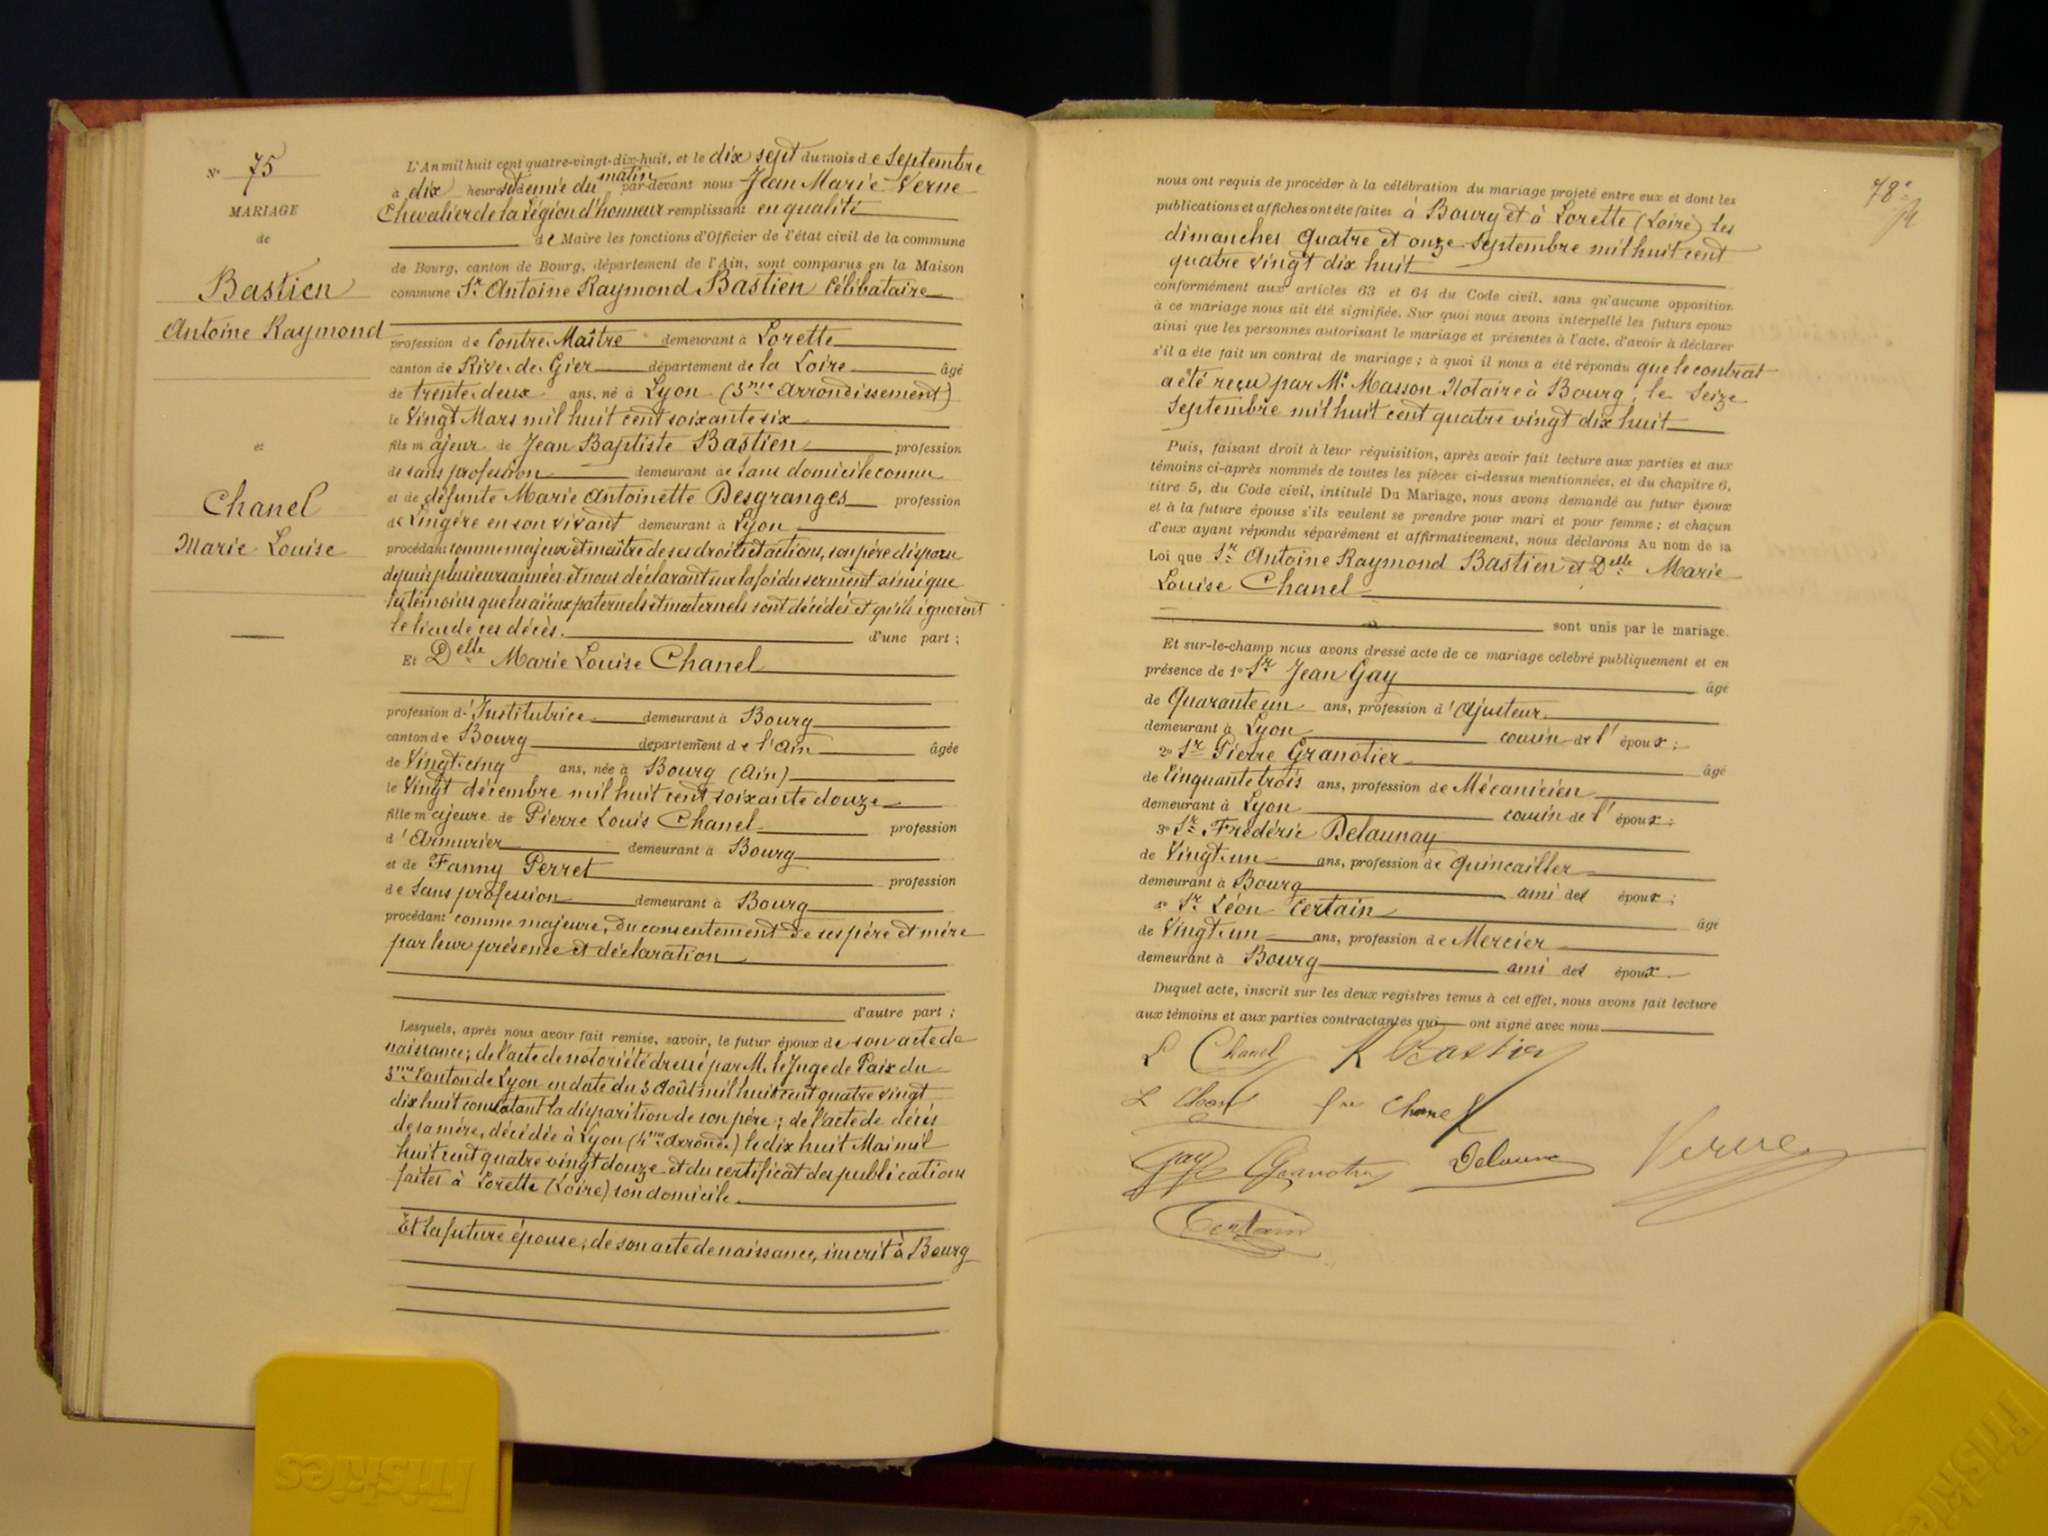 N° 75
MARIAGE
de
Bastien
Antoine Raymond
et
Chanel
Marie Louise
L'An mil huit cent quatre-vingt-dix-huit, et le dix sept du mois de Septembre
à dix heures et demie du matin par-devant nous Jean Marie Verne
Chevalier de la Légion d'honneur remplissant en qualité
de Maire les fonctions d'Officier de l'état civil de la commune
de Bourg, canton de Bourg, département de l'Ain, sont comparus en la Maison
commune Sr Antoine Raymond Bastien Célibataire
profession de Contre-Maître demeurant à Lorette
canton de Rive-de-Gier département de la Loire âgé
de trente-deux ans, né à Lyon (3me Arrondissement)
le Vingt Mars mil huit cent soixante six
fils majeur de Jean Baptiste Bastien profession
de sans profession demeurant de sans domicile connu
et de défunte Marie Antoinette Desgranges profession
de Lingère en son vivant demeurant à Lyon
procédant comme majeur et maître de ses droits et actions, son père disparu
depuis plusieurs années et nous déclarant sur la foi du serment ainsi que
les témoins que les aïeux paternels et maternels sont décédés et qu'ils ignorent
le lieu de ces décès. d'une part ;
Et Delle Marie Louise Chanel
profession d'Institutrice demeurant à Bourg
canton de Bourg département de l'Ain âgée
de Vingt-cinq ans, née à Bourg (Ain)
le Vingt décembre mil huit cent soixante douze
fille majeure de Pierre Louis Chanel profession
d'Armurier demeurant à Bourg
et de Fanny Perret profession
de Sans profession demeurant à Bourg
procédant comme majeure, du consentement de ses père et mère
par leur présence et déclaration
d'autre part ;
Lesquels, après nous avoir fait remise, savoir, le futur époux de son acte de
naissance ; de l'acte de notoriété dressé par M. le Juge de Paix du
3me Canton de Lyon en date du 3 Août mil huit cent quatre vingt
dix huit constatant la disparition de son père ; de l'acte de décès
de sa mère, décédée à Lyon (4me Arrondt) le dix huit Mai mil
huit cent quatre vingt douze et du certificat des publications
faites à Lorette (Loire) son domicile
Et la future épouse ; de son acte de naissance, inscrit à Bourg
78e
nous ont requis de procéder à la célébration du mariage projeté entre eux et dont les
publications et affiches ont été faites à Bourg et à Lorette (Loire) les
dimanches quatre et onze Septembre mil huit cent
quatre vingt dix huit
conformément aux articles 63 et 64 du Code civil, sans qu'aucune opposition
à ce mariage nous ait été signifiée. Sur quoi nous avons interpellé les futurs époux
ainsi que les personnes autorisant le mariage et présentes à l'acte, d'avoir à déclarer
s'il a été fait un contrat de mariage ; à quoi il nous a été répondu que le contrat
a été reçu par Me Masson Notaire à Bourg, le Seize
Septembre mil huit cent quatre vingt dix huit
Puis, faisant droit à leur réquisition, après avoir fait lecture aux parties et aux
témoins ci-après nommés de toutes les pièces ci-dessus mentionnées, et du chapitre 6,
titre 5, du Code civil, intitulé Du Mariage, nous avons demandé au futur époux
et à la future épouse s'ils veulent se prendre pour mari et pour femme ; et chacun
d'eux ayant répondu séparément et affirmativement, nous déclarons Au nom de la
Loi que Sr Antoine Raymond Bastien et Delle Marie
Louise Chanel
sont unis par le mariage.
Et sur-le-champ nous avons dressé acte de ce mariage célébré publiquement et en
présence de 1° Sr Jean Gay âgé
de Quarante un ans, profession d'Ajusteur
demeurant à Lyon cousin de l'époux ;
2° Sr Pierre Granotier âgé
de Cinquante trois ans, profession de Mécanicien
demeurant à Lyon cousin de l'époux ;
3° Sr Frédéric Delaunay
de Vingt-un ans, profession de Quincailler
demeurant à Bourg ami des époux ;
4° Sr Léon Certain âgé
de Vingt-un ans, profession de Mercier
demeurant à Bourg ami des époux
Duquel acte, inscrit sur les deux registres tenus à cet effet, nous avons fait lecture
aux témoins et aux parties contractantes qui ont signé avec nous
L Chanel R Bastien
L Chanel fne Chanel
Gay Granotier Delaunay Verne
Certain
Friskies
Friskies